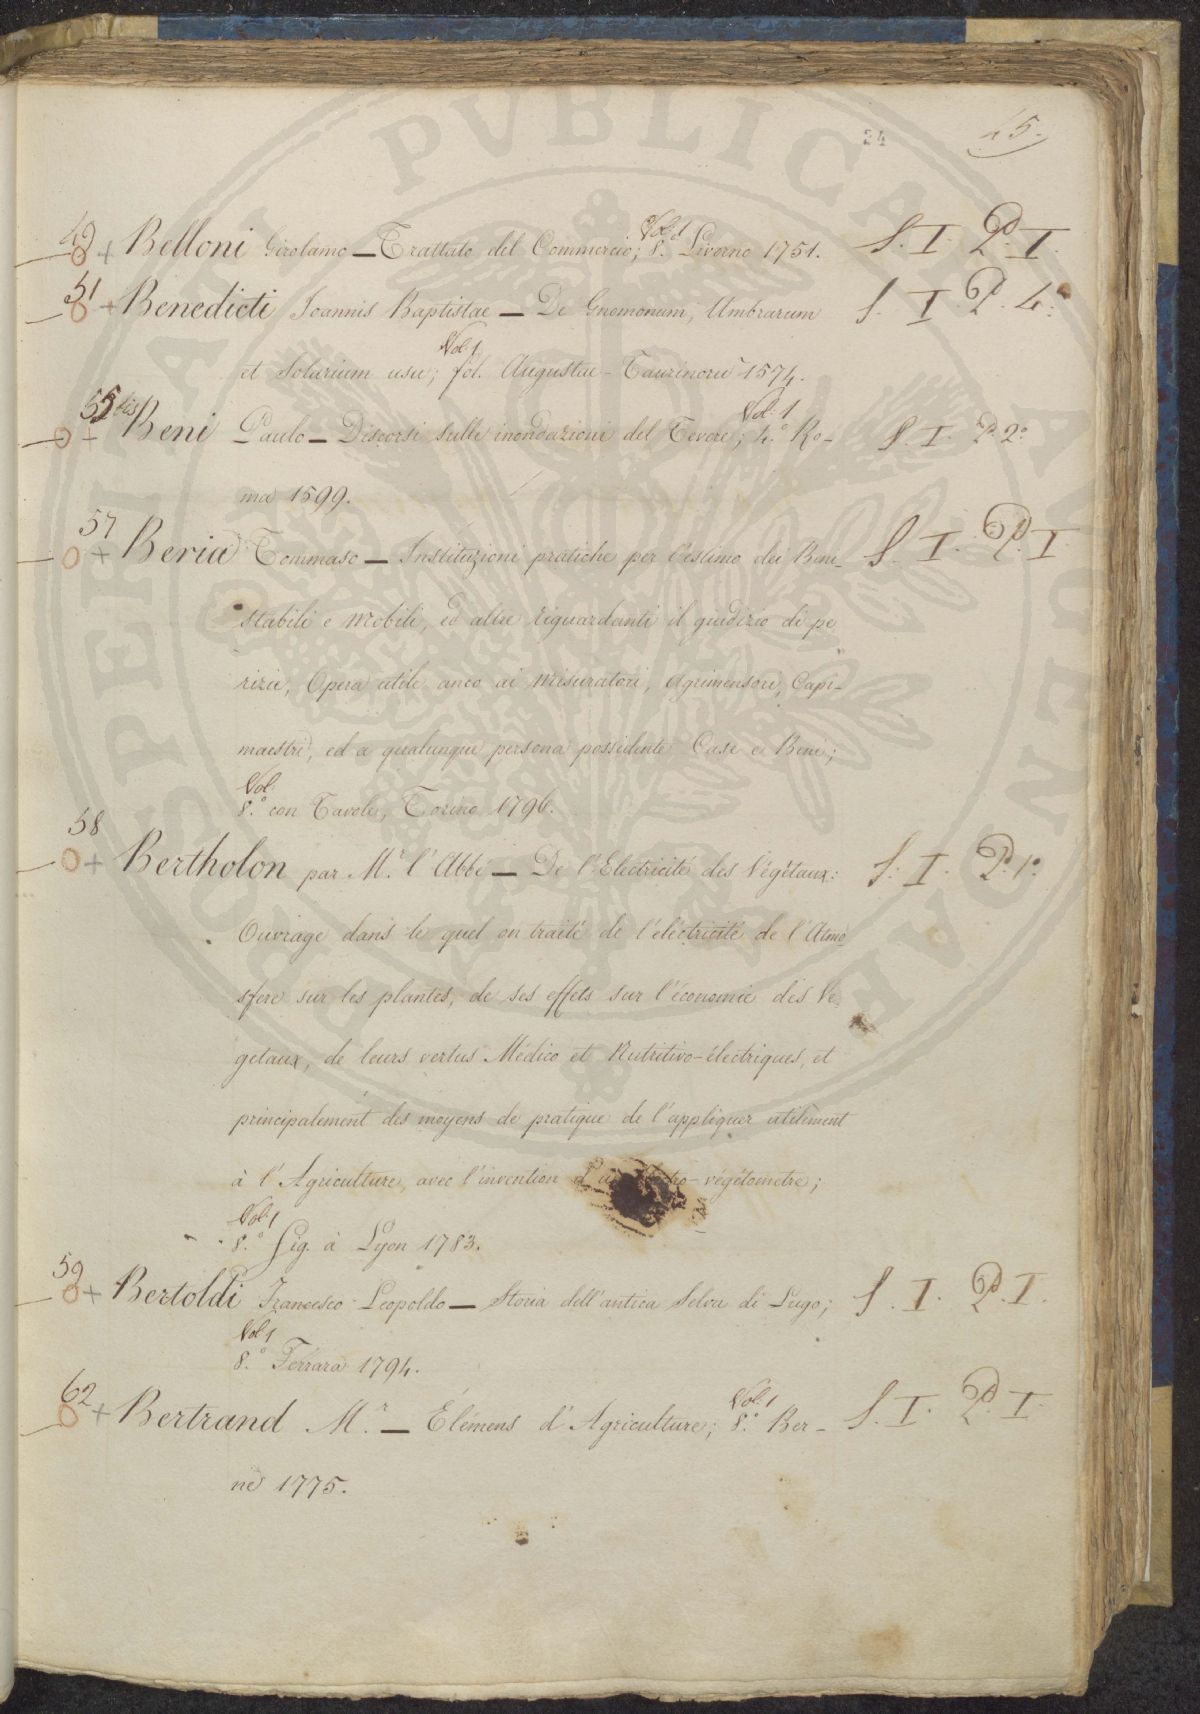 24
45.
49 Belloni Girolamo — Trattato del Commercio; Vol. 1 8.° Livorno 1751. S. I. P. I.
51 Benedicti Joannis Baptistae — De Gnomonum, Umbrarum S. I. P. 4.°
et Solarium usu; Vol. 1 fol. Augustae-Taurinoru 1574.
55 bis Beni Paulo — Discorsi sulle inondazioni del Tevere; Vol. 1 4.° Ro- S. I. P. 2.°
ma 1599.
57 Beria Tommaso — Instituzioni pratiche per l'estimo dei Beni- S. I. P. I
stabili e mobili, ed altre riguardanti il giudizio di pe
rizie, Opera utile anco ai Misuratori, Agrimensori, Capi-
maestri, ed a qualunque persona possidente Case e Beni;
Vol.
8.° con Tavole, Torino 1796.
58 Bertholon par M.r l'Abbé — De l'Electricité des Végétaux: S. I. P. 1.°
Ouvrage dans le quel on traite de l'eléctricité de l'Atmo-
sfere sur les plantes, de ses effets sur l'économie des Ve-
getaux, de leurs vertus Médico et Nutritivo-électriques, et
principalement des moyens de pratique de l'appliquer utilement
à l'Agriculture, avec l'invention d'un tro-végétometre;
Vol. 1
8.° Fig. à Lyon 1783.
59 Bertoldi Francesco Leopoldo — Storia dell'antica Selva di Lugo; S. I. P. I.
Vol. 1
8.° Ferrara 1794.
62 Bertrand M.r — Élémens d'Agriculture; Vol. 1 8.° Ber- S. I. P. I.
ne 1775.
PUBLICAE AVGENDAE PROSPERITATI